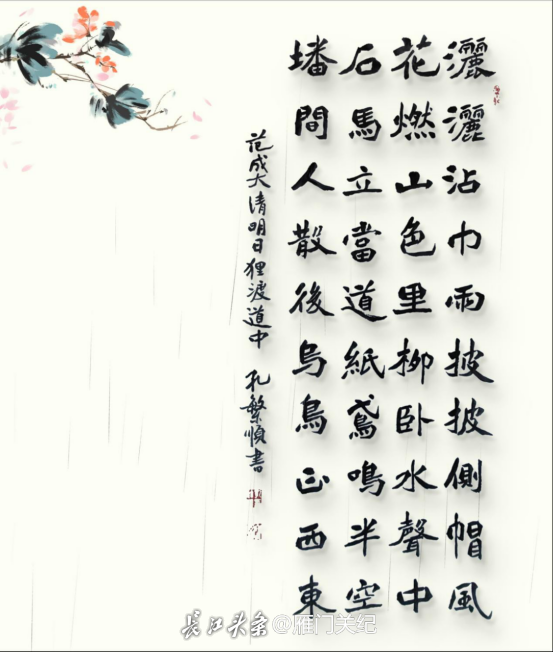 灑灑沾巾雨披披側帽風
花燃山色里柳卧水聲中
石馬立當道紙鳶鳴半空
墦間人散後烏鳥正西東
范成大清明日狸渡道中 孔繁順書
长江头条 @雁门关纪